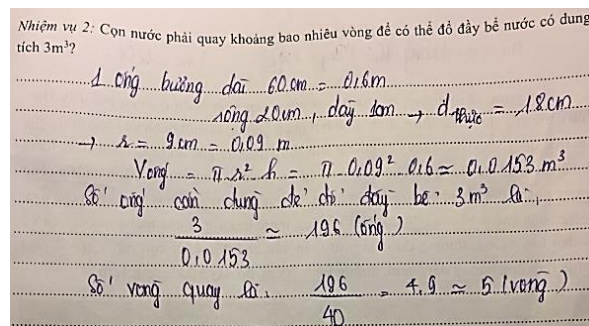 Nhiệm vụ 2: Cọn nước phải quay khoảng bao nhiêu vòng để có thể đổ đầy bể nước có dung
tích 3m³?
1 ống bương dài 60cm = 0,6m
rộng 20cm, dày 1cm → d thực = 18cm
→ r = 9cm = 0,09 m
V ống = π r² h = π 0,09² 0,6 ≃ 0,0153 m³
Số ống cần dùng để đổ đầy bể 3m³ là,
3 / 0,0153 ≃ 196 (ống)
Số vòng quay là 196 / 40 = 4,9 ≃ 5 (vòng)